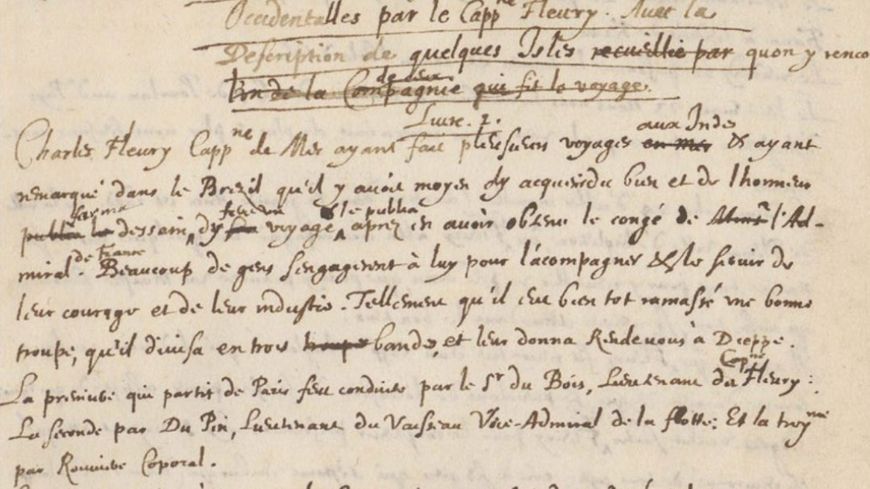 Occidentalles par le Capp.ne Fleury. Avec la
Description de quelques Isles recueillie par quon y renco
de la Compagnie de ceux qui fit le voyage.
Livre. 1.
Charles Fleury Capp.ne de Mer ayant fait plusieurs voyages aux Inde en Mer & ayant
remarqué dans le Brezil qu'il y avoit moyen d'y acquerir du bien et de lhonneur
publia le forma dessain d'y faire un voyage & le publia aprez en avoir obtenu le congé de l'Ad-
miral de France. Beaucoup de gens s'engagerent à luy pour l'acompagner & le servir de
leur courage et de leur industrie. Tellement qu'il eut bien tot ramassé une bonne
troupe, qu'il divisa en trois troupe bandes, et leur donna Rendevous à Dieppe.
La premiere qui partit de Paris feu conduite par le Sr du Bois, Lieutenant du Cap.ne Fleury:
La seconde par Du Pin, Lieutenant du Vaisseau Vice-Admiral de la flotte; Et la troy.me
par Caporal.